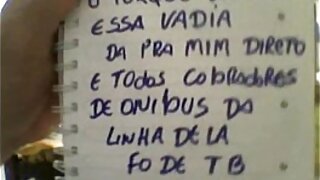 ESSA VADIA
DA PRA MIM DIRETO
E TODOS COBRADORES
DE ONIBUS DA
LINHA DE LA
FODE TB